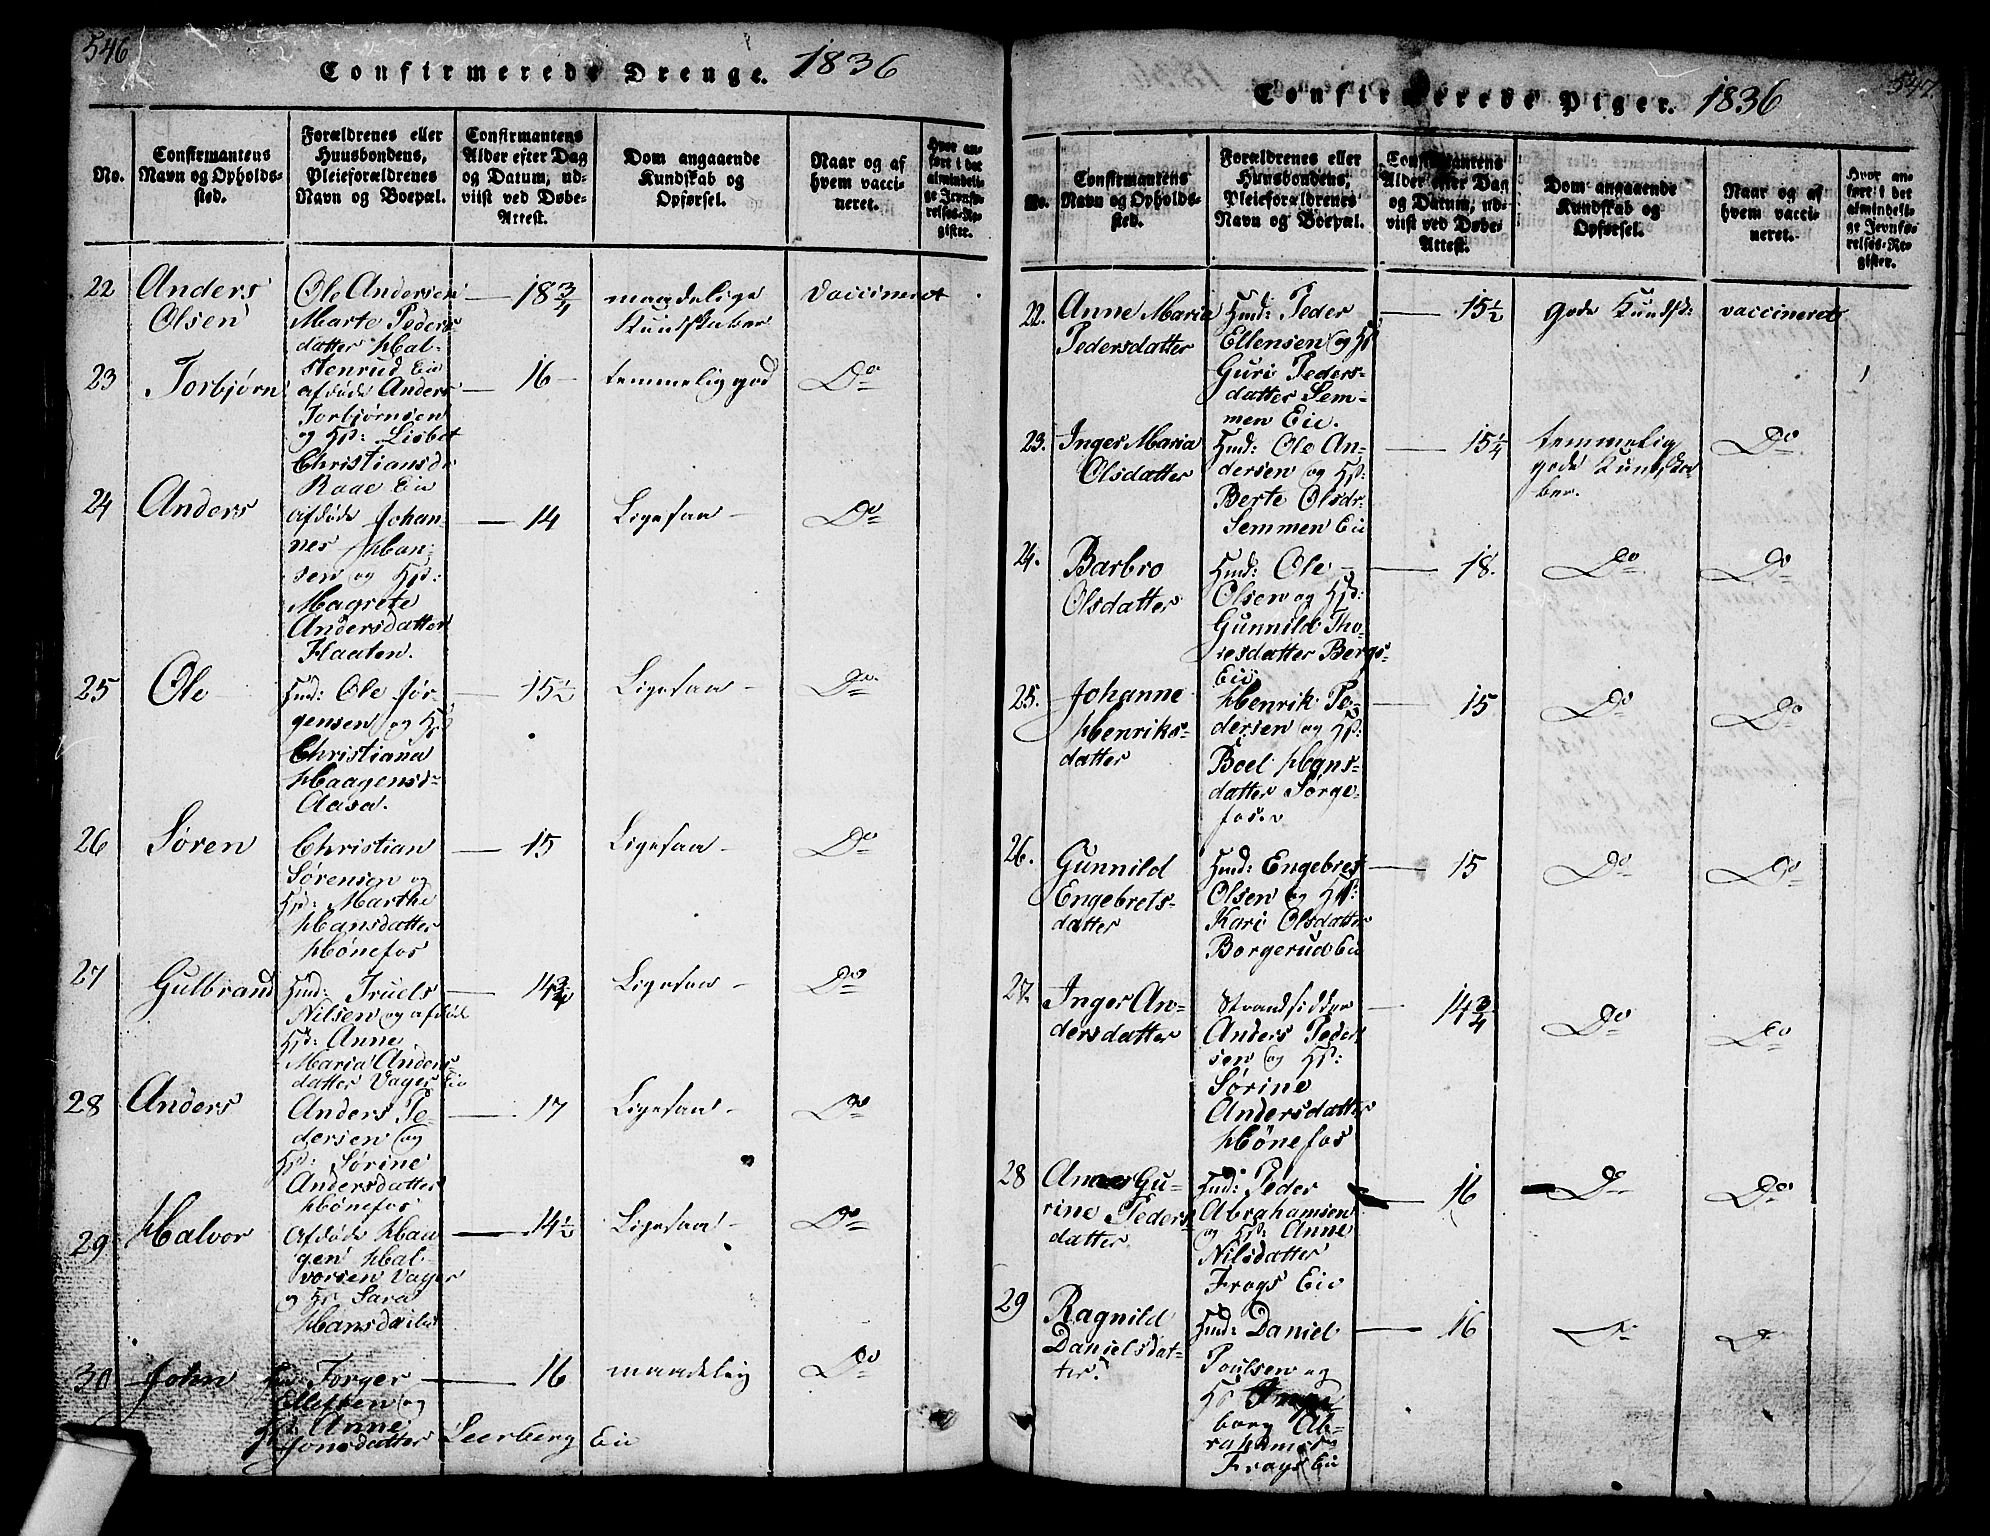 546
Confirmerede Drenge. 1836
No.
Confirmantens
Navn og Opholds-
sted.
Forældrenes eller
Huusbondens,
Pleieforældrenes
Navn og Boepæl.
Confirmantens
Alder efter Dag
og Datum, ud-
viist ved Døbe-
Attest.
Dom angaaende
Kundskab og
Opførsel.
Naar og af
hvem vacci-
neret.
Hvor an-
ført i det
almindeli-
ge Jevnfø-
relses-Re-
gister.
22 Anders Olsen
Ole Andersen
Marte Peders
datter Hal-
stenrud Eie
18 3/4
maadelige
Kundskaber
vaccineret
23 Torbjørn
afdøde Anders
Torbjørnsen
og Hst: Lisbet
Christiansdr
Raae Eie
16
temmelig god
Do
24 Anders
afdøde Johan-
nes Han-
sen og Hst:
Magrete
Andersdatter
Flaaten.
14
Ligesaa
Do
25 Ole
Hmd: Ole Jør-
gensen og Hst
Christiana
Haagensd-
Aasa.
15 1/2
Ligesaa
Do
26 Søren
Christian
Sørensen og
Hst: Marthe
Hansdatter
Hönefos
15
Ligesaa
Do
27 Gulbrand
Hmd: Truels
Nilsen og afdøde
Hst: Anne
Maria Anders
datter Vager Eie
14 3/4
Ligesaa
Do
28 Anders
Anders Pe-
dersen og
Hst: Sørine
Andersdatter
Hönefos
17
Ligesaa
Do
29 Halvor
Afdøde Haa
gen Hal
vorsen Vager
og Hst Sara
Hansdatter
14 1/2
Ligesaa
Do
30 John
Torger
Ellefsen og
Hst Anne
Jonsdatter Leerberg Eie
16
maadelig
Do
547.
Confirmerede Piger. 1836
No.
Confirmantens
Navn og Opholds-
sted.
Forældrenes eller
Huusbondens,
Pleieforældrenes
Navn og Boepæl.
Confirmantens
Alder efter Dag
og Datum, ud-
viist ved Døbe-
Attest.
Dom angaaende
Kundskab og
Opførsel.
Naar og af
hvem vacci-
neret.
Hvor an-
ført i det
almindeli-
ge Jevnfø-
relses-Re-
gister.
22. Anne Maria
Pedersdatter
Hmd: Peder
Ellensen og Hst
Guri Peders-
datter Sem-
men Eie.
15 1/2
gode Kundsk:
vaccineret
23. Inger Maria
Olsdatter
Hmd: Ole An-
dersen og Hst:
Berte Olsdr-
Semmen Eie
15 1/4
temmelig
gode Kundska
ber.
Do
24. Barbro
Olsdatter
Hmd: Ole
Olsen og Hst:
Gunnild Tho-
resdatter Bergs-
Eie
18.
Do
Do
25. Johanne
Henriks-
datter
Henrik Pe-
dersen og Hst:
Boel Hans-
datter Sørge-
fos.
15
Do
Do
26. Gunnild
Engebrets-
datter
Hmd: Engebret
Olsen og Hst:
Kari Olsdatter
Borgerud Eie
15
Do
Do
27. Inger An-
dersdatter
Strandsidder
Anders Peder
sen og Hst:
Sörine
Andersdatter
Hönefos
14 3/4
Do
Do
28 Anne Gu-
rine Peders
datter
Hmd: Peder
Abrahamsen
og Hst: Anne
Nilsdatter
Frogs Eie
16
Do
Do
29 Ragnild
Danielsdat-
ter.
Hmd: Daniel
Poulsen og
Hst Inge
borg Ab-
rahams
Frogs Eie
16
Do
Do